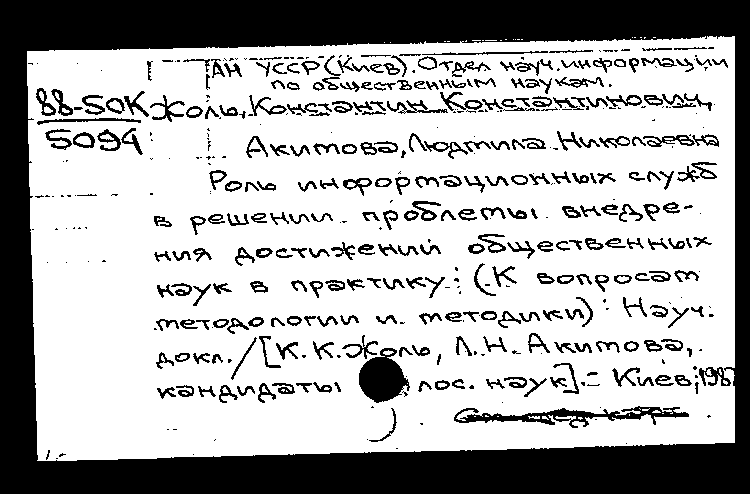 АН УССР (Киев). Отдел науч. информации
по общественным наукам.
88-50К
5094
Жоль, Константин Константинович,
Акимова, Людмила Николаевна
Роль информационных служб
в решении проблемы внедре-
ния достижений общественных
наук в практику: (К вопросам
методологии и методики): Науч.
докл. / [К. К. Жоль, Л. Н. Акимова,
кандидаты лос. наук]. - Киев;